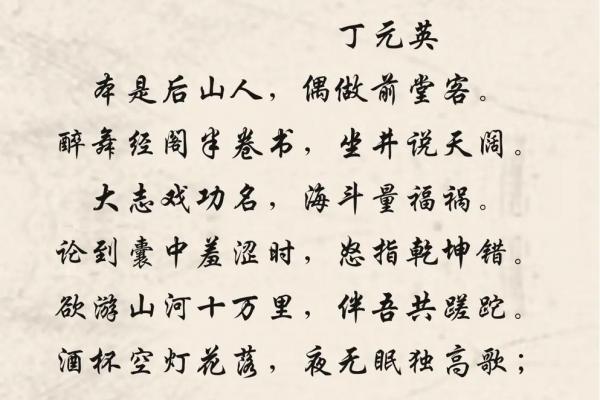 丁元英
本是后山人，偶做前堂客。
醉舞经阁半卷书，坐井说天阔。
大志戏功名，海斗量福祸。
论到囊中羞涩时，怒指乾坤错。
欲游山河十万里，伴吾共蹉跎。
酒杯空灯花落，夜无眠独高歌；